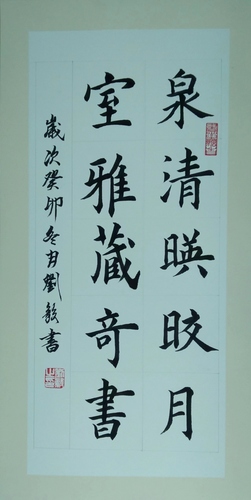 泉清暎皎月
室雅藏奇書
歲次癸卯冬月劉毅書